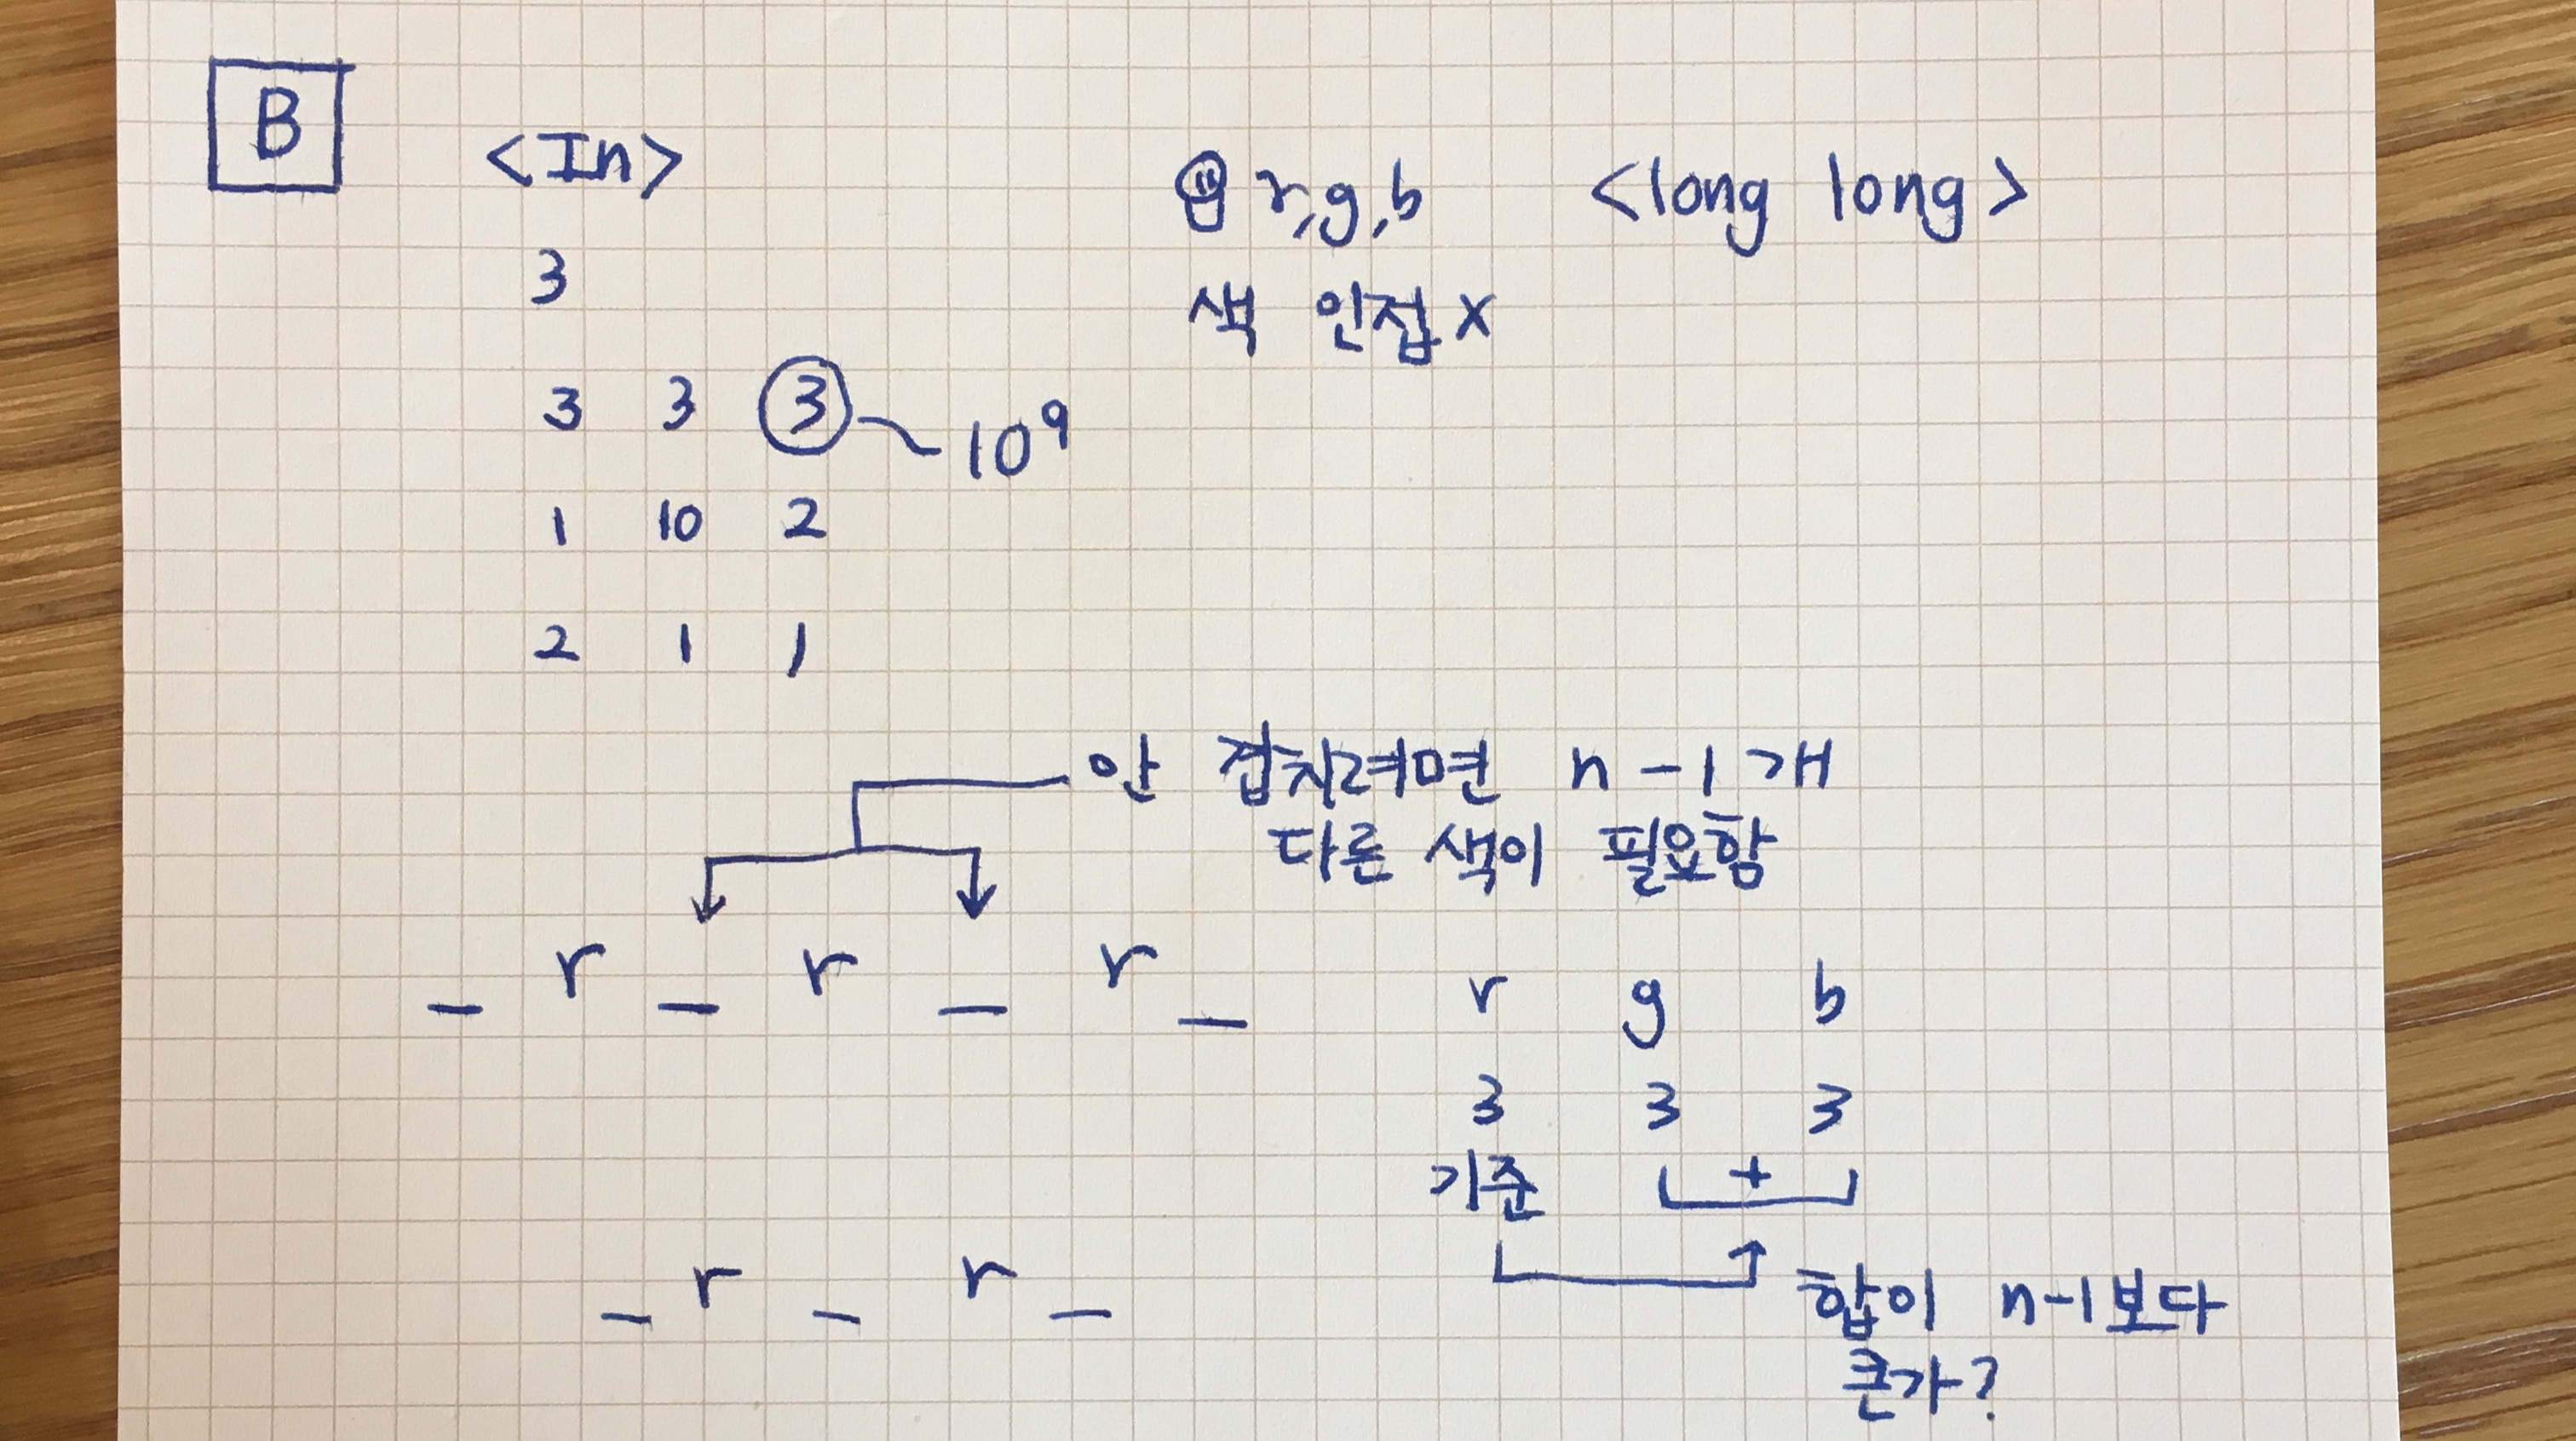 B
<In>
r,g,b <long long>
3
색 인접 x
3 3 3 10⁹
1 10 2
2 1 1
안 겹치려면 n-1개
다른 색이 필요함
_ r _ r _ r _
r g b
3 3 3
기준 +
_ r _ r _
합이 n-1보다
큰가?